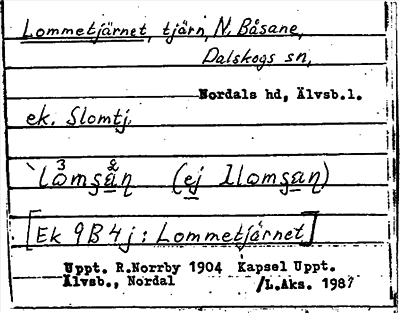 Lommetjärnet, tjärn, N. Båsane,
Dalskogs sn,
Nordals hd, Älvsb.l.
ek. Slomtj.
(ej
[Ek 9B4j: Lommetjärnet]
Uppt. R.Norrby 1904 Kapsel Uppt.
Älvsb., Nordal /L.Aks. 1987